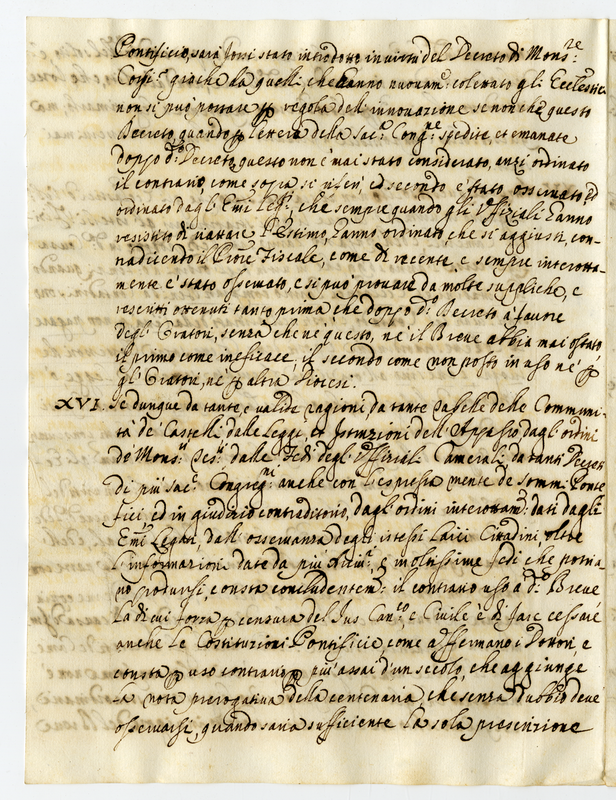 Pontificio, saria forsi stato introdotto in virtù del Decreto di Mons:re
Corsi, giache da quelli, che hanno nuovam: colettato gli Ecclestici
non si può portare p regola dell'innovazione se non che questo
Decreto, quando p lettera della Sac: Cong:ne spedite, et emanate
doppo d:o Decreto, questo non è mai stato considerato, anzi ordinato
il contrario, come sopra si riferì, ed secondo è stato osservato, et
ordinato dagl'Emi Leg:i, che sempre quando gl'Offiziali hanno
resistito di narrare l'Estimo, hanno ordinato, che si aggiusti, con-
tradicendo il Priore Fiscale, come di recente, e sempre interotta-
mente è stato osservato, e si può provare da molte suppliche, e
rescritti ottenuti tanto prima che doppo d:o Decreto à favore
degl'Oratori, senza che nè questo, nè il Breve abbia mai ostato
il primo come inefficace, il secondo come non posto in uso nè p
gl'Oratori, nè p altra Diocesi.
XVI. Se dunque da tante, e valide ragioni, da tante Tasche delle Communi-
tà de Castelli, dalle Leggi, et Istruzioni dell'Appasso, dagl'ordini
de Mons:ri Tes:ri, dalle Fedi degl'Offiziali Camerali, da tanti Decreti
di più Sac: Congreg:ni anche con l'espressa mente de Sommi Ponte
fici ed in giudicio contraditorio, dagl'ordini interottam: dati dagli
Em:i Legati, dall'osservanza degl'istessi Laici Citadini, oltre
l'informazioni date da più Vicin:i, e moltissime fedi che potria-
no prodursi, e consta concludentem: il contrario uso à d:o Breve
la di cui forza p censura del Jus Can:co, e Civile è di far cessare
anche le Costituzioni Pontificie, come affermano i Dottori, e
consta p uso contrario p più assai d'un secolo, che aggiunge
la nota prerogativa della centenaria, che senza dubbio deve
osservarsi, quando saria sufficiente la sola prescrizione